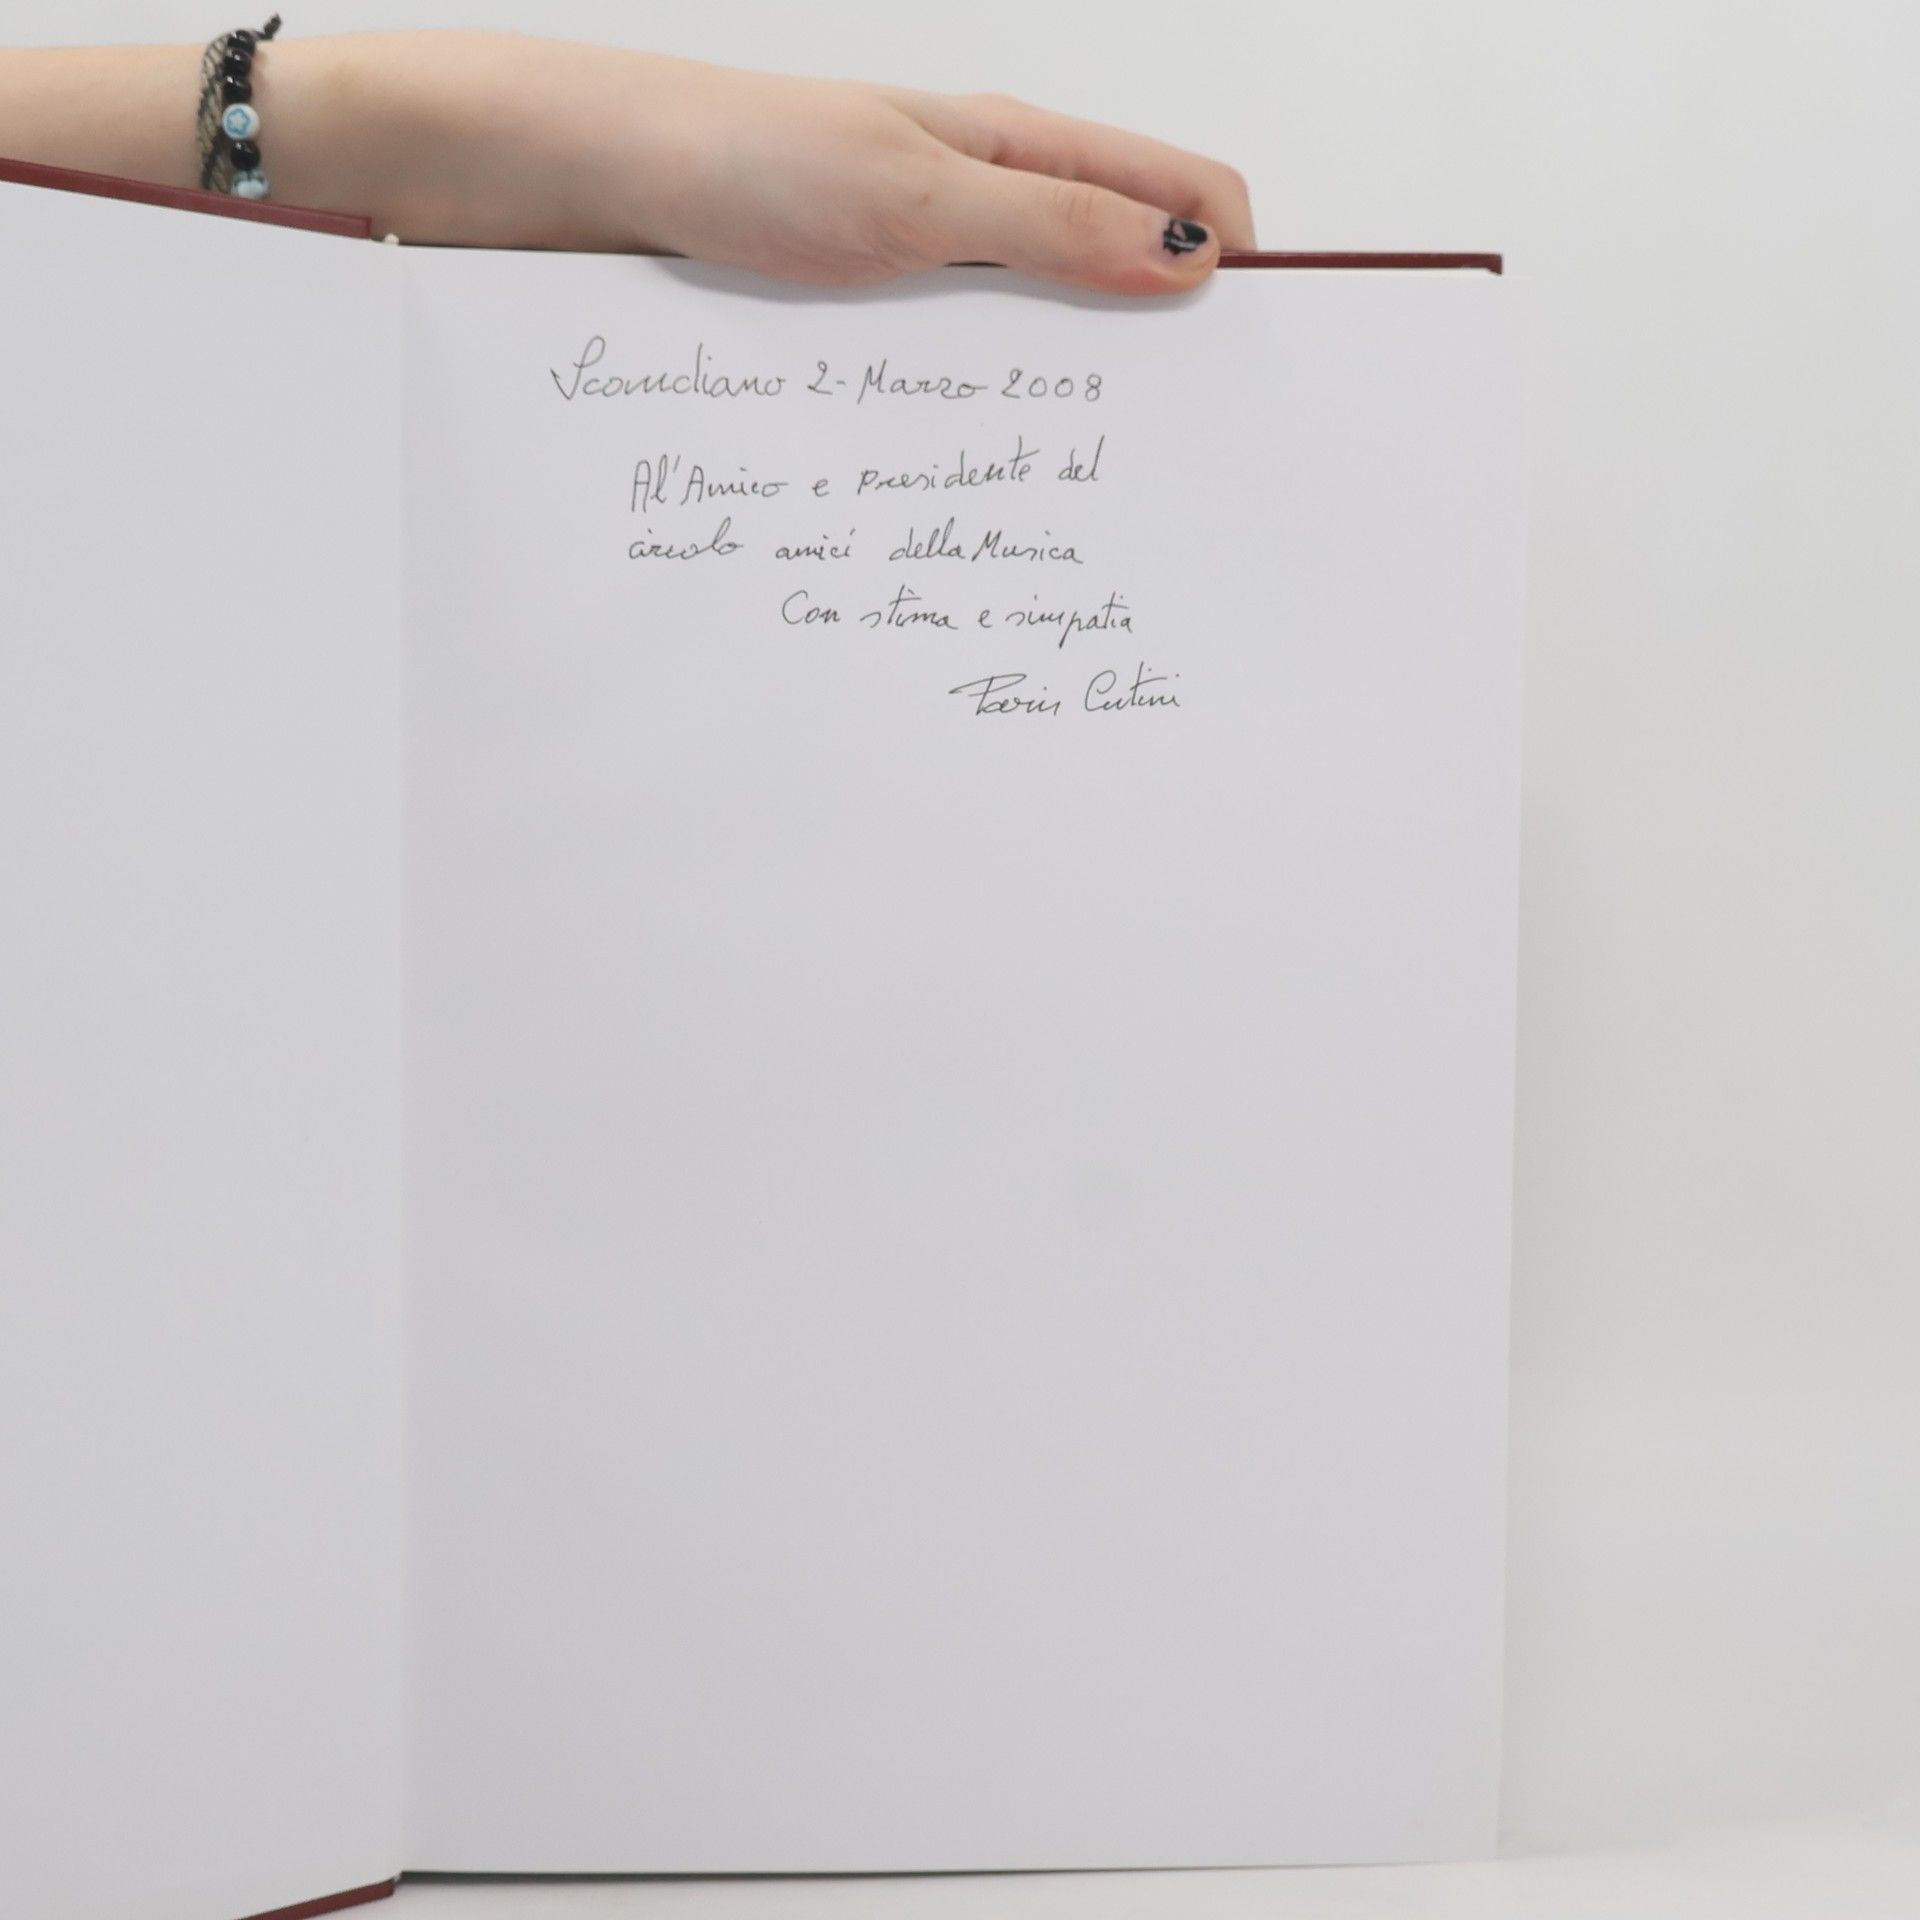 Scandiano 2-Marzo 2008
Al'Amico e presidente del
circolo amici della Musica
Con stima e simpatia
Cutini